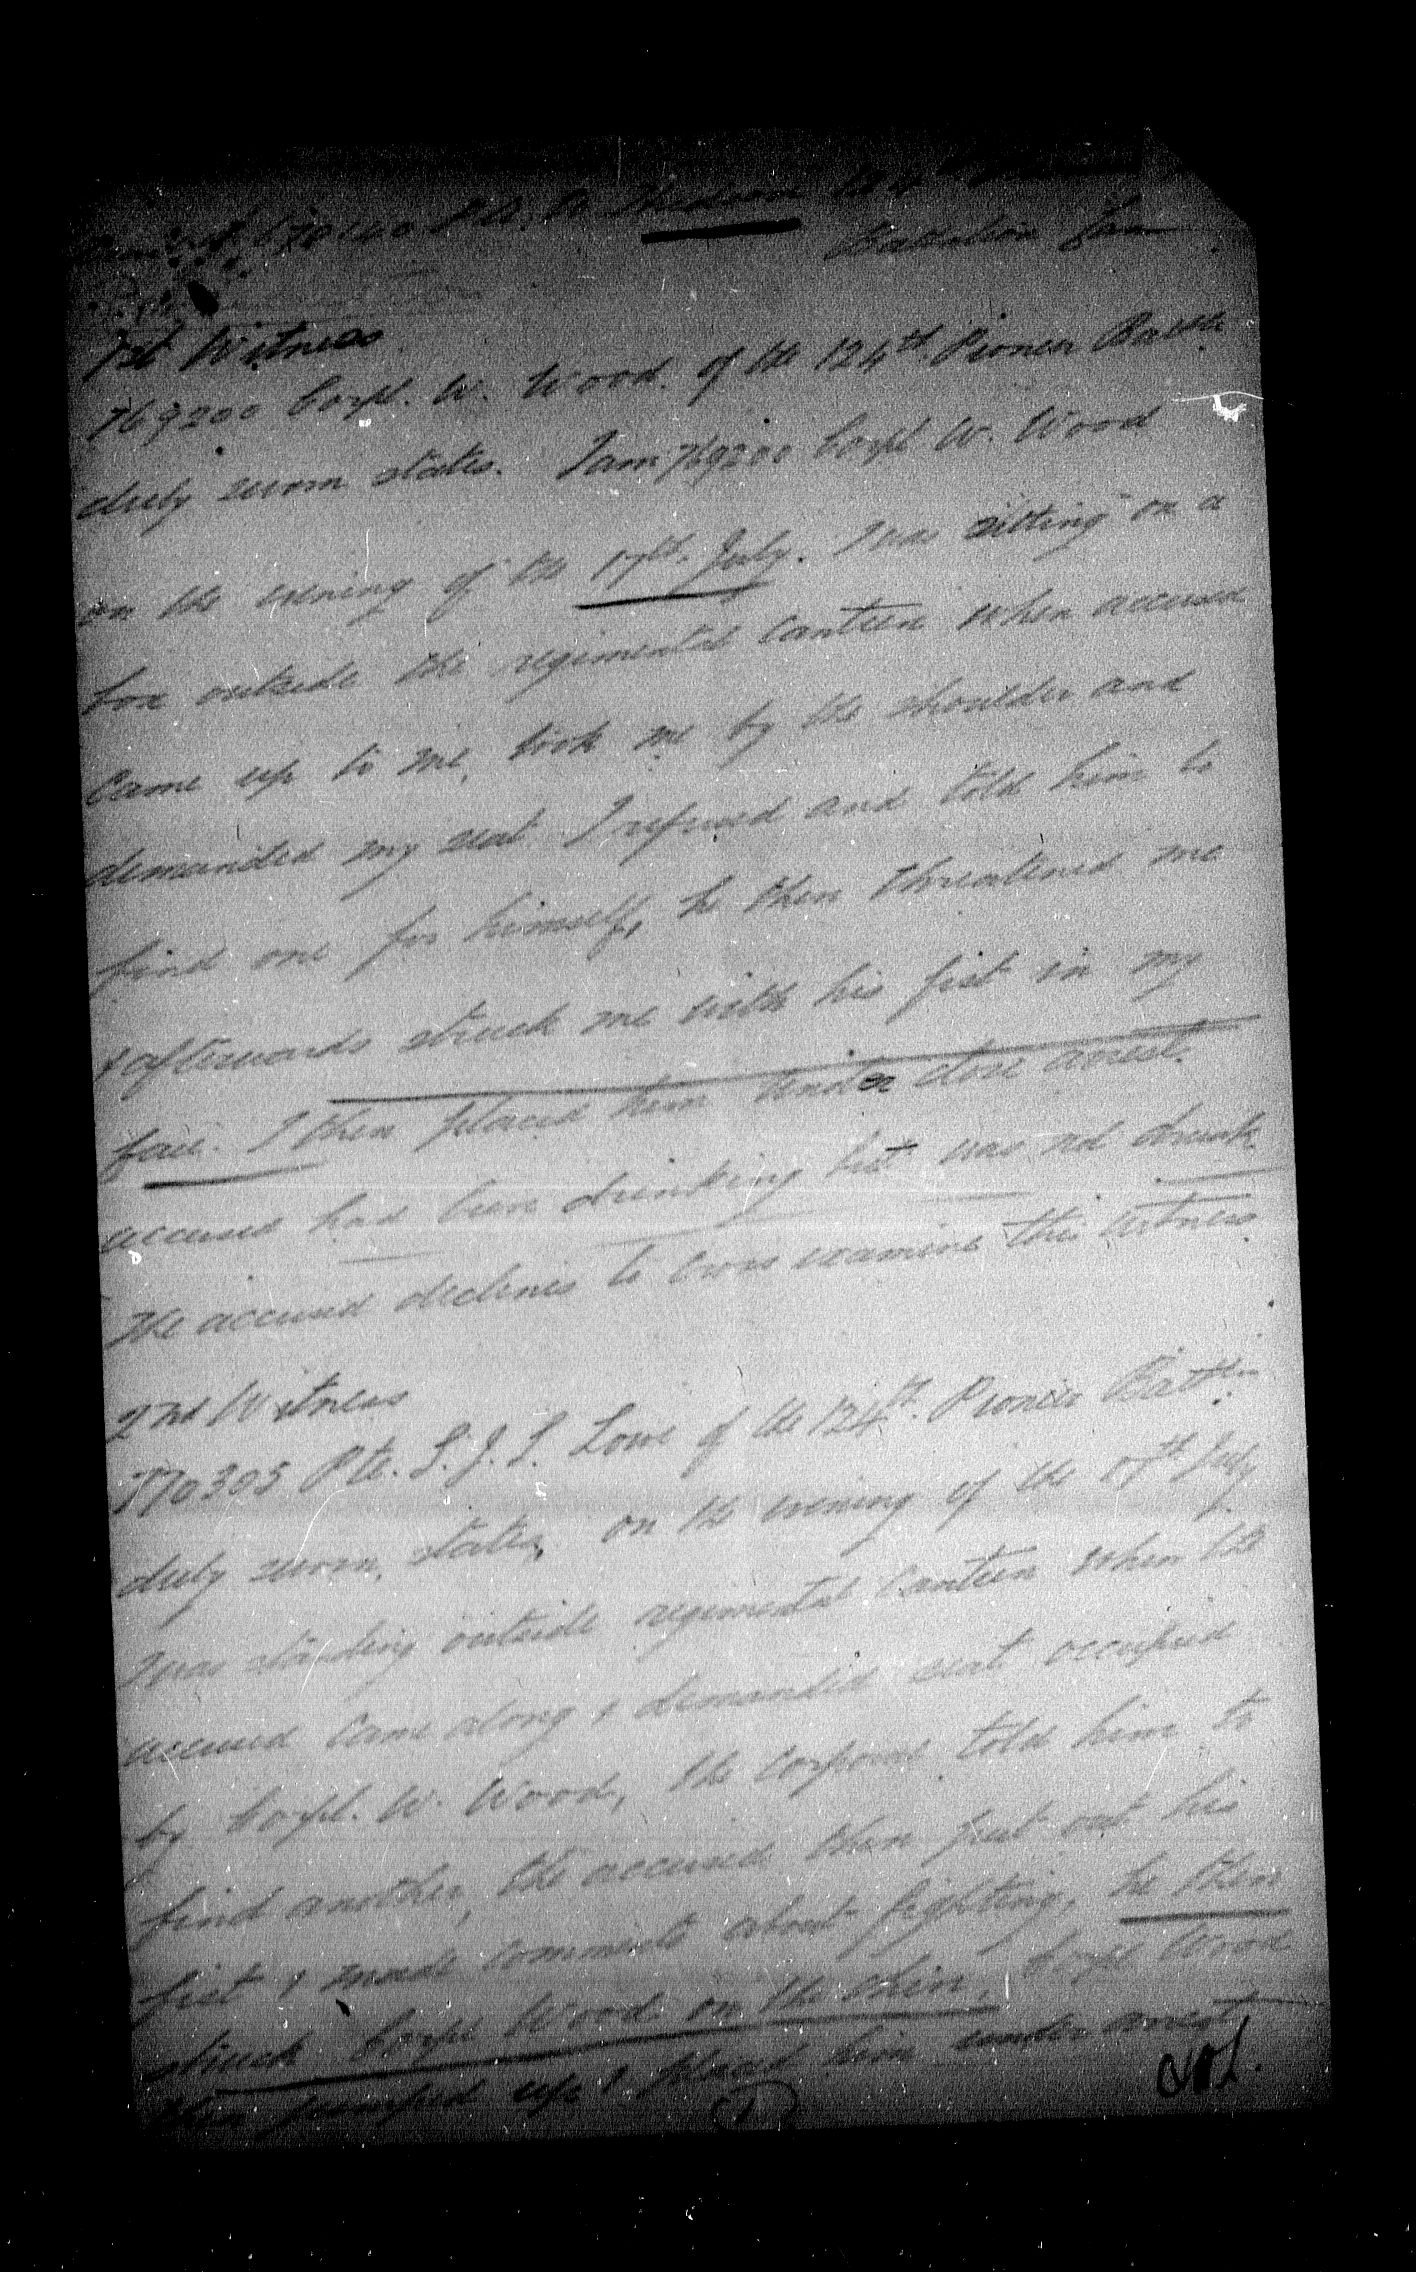 Hudson
Battalion Can
1st Witness
769200 Corpl. W. Wood. of the 124th Pioneer Battn
duly sworn states. I am 769200 Corpl W. Wood
on the evening of the 17th July. I was sitting on a
box outside the regimental Canteen when accused
Came up to me, took me by the shoulder and
demanded my seat. I refused and told him to
find one for himself, he then threatened me
& afterwards struck me with his fist in my
face. I then placed him under close arrest.
accused had been drinking but was not drunk
The accused declines to Cross examine this witness
2nd Witness
770305 Pte. S. J. S. Lowe of the 124th. Pioneer Battn
duly sworn, states, on the evening of the 17th July
I was standing outside regimental Canteen when the
accused Came along & demanded seat occupied
by Corpl. W. Wood, the Corporal told him to
find another, the accused then put out his
fist & made comments about fighting, he then
struck Corpl Wood on the chin, Corpl Wood
then jumped up & placed him under arrest
1